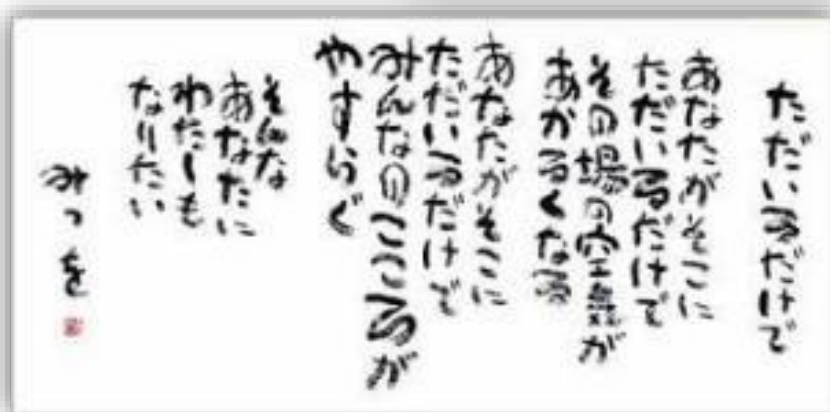 ただいるだけで
あなたがそこに
ただいるだけで
その場の空気が
あかるくなる
あなたがそこに
ただいるだけで
みんなのこころが
やすらぐ
そんな
あなたに
わたしも
なりたい
みつを